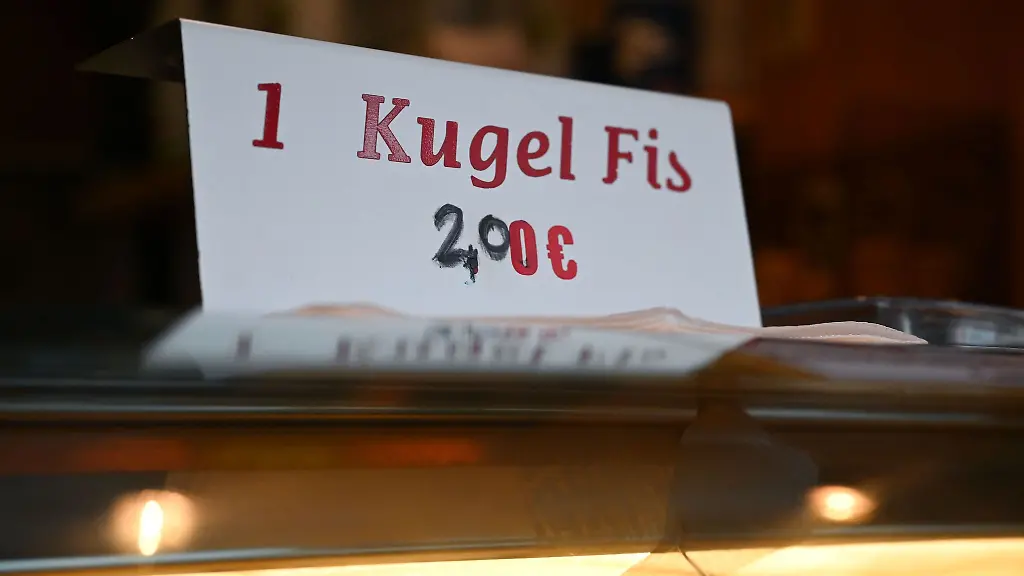 1 Kugel Fis
2,00€